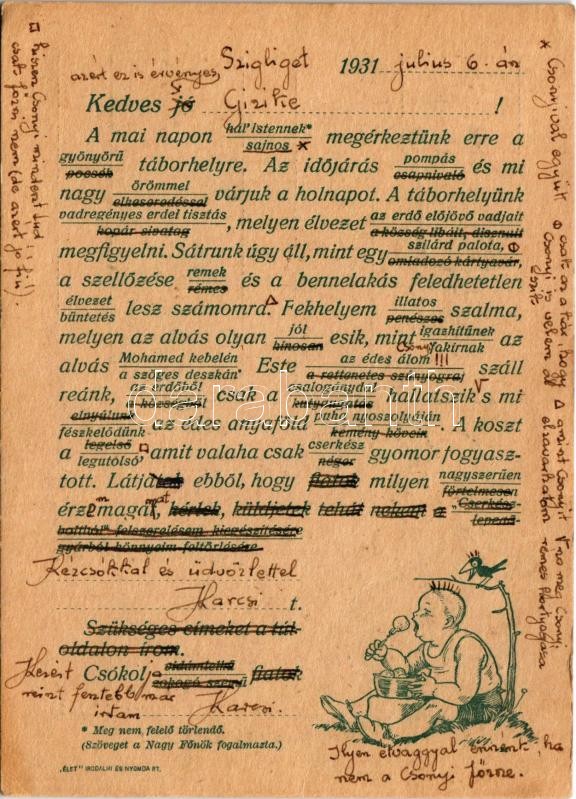 azért ez is érvényes,
Szigliget 1931 julius 6. án
Kedves jó Gizike !
A mai napon hál' Istennek* / sajnos megérkeztünk erre a
gyönyörű / pocsék táborhelyre. Az időjárás pompás / csapnivaló és mi
nagy örömmel / elkeseredéssel várjuk a holnapot. A táborhelyünk
vadregényes erdei tisztás / kopár sivatag , melyen élvezet az erdő előjövő vadjait / a község libáit, disznait
megfigyelni. Sátrunk úgy áll, mint egy szilárd palota, / omladozó kártyavár,
a szellőzése remek / rémes és a bennelakás feledhetetlen
élvezet / büntetés lesz számomra. Fekhelyem illatos / penészes szalma,
melyen az alvás olyan jól / kinosan esik, mint igazhitűnek / Csonyi fakirnak az
alvás Mohamed kebelén / a szöges deszkán* Este az édes álom!!! / a rettenetes szúnyograj száll
reánk, az erdőből / a községből csak a csalogánydal / kutyaugatás hallatszik s mi
elnyúlunk / fészkelődünk az édes anyaföld puha nyoszolyáján / kemény kövein . A koszt
a legelső / legutolsó , amit valaha csak cserkész / néger gyomor fogyasz-
tott. Látjátok ebből, hogy fiatok milyen nagyszerűen / förtelmesen
érzem magamat, kérlek, küldjetek tehát nekem a „Cserkész- / lepená-
bolthól" felszerelésem kiegészítésére
gyárból könnyeim feltörlésére.
Kézcsókkal és üdvözlettel
Karcsi t.
Szükséges címeket a túl-
oldalon írom.
Csókolja zokogó szemű fiatok
Kezeit
mint fentebb már
irtam Karcsi.
* Meg nem felelő törlendő.
(Szöveget a Nagy Főnök fogalmazta.)
„ÉLET" IRODALMI ÉS NYOMDA RT.
Ilyen elvaggyal ennénk, ha
nem a Csonyi főzne.
hiszen Csonyi mindent tud
csak főzni nem (de azért jó fiú).
* Csonyival együtt
csak az a kár, hogy
Csonyi is velem al-
szik
amint Csonyit
elzavarhatom
no meg Csonyi
rémes hortyogása
darabanth